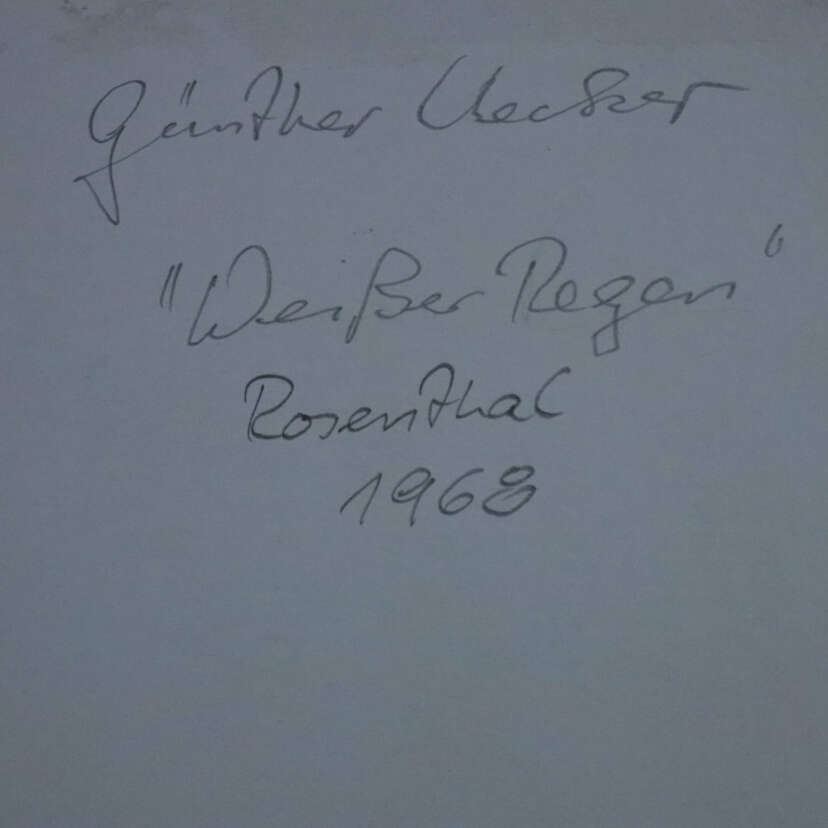 Günther Uecker
"Weißer Regen"
Rosenthal
1968